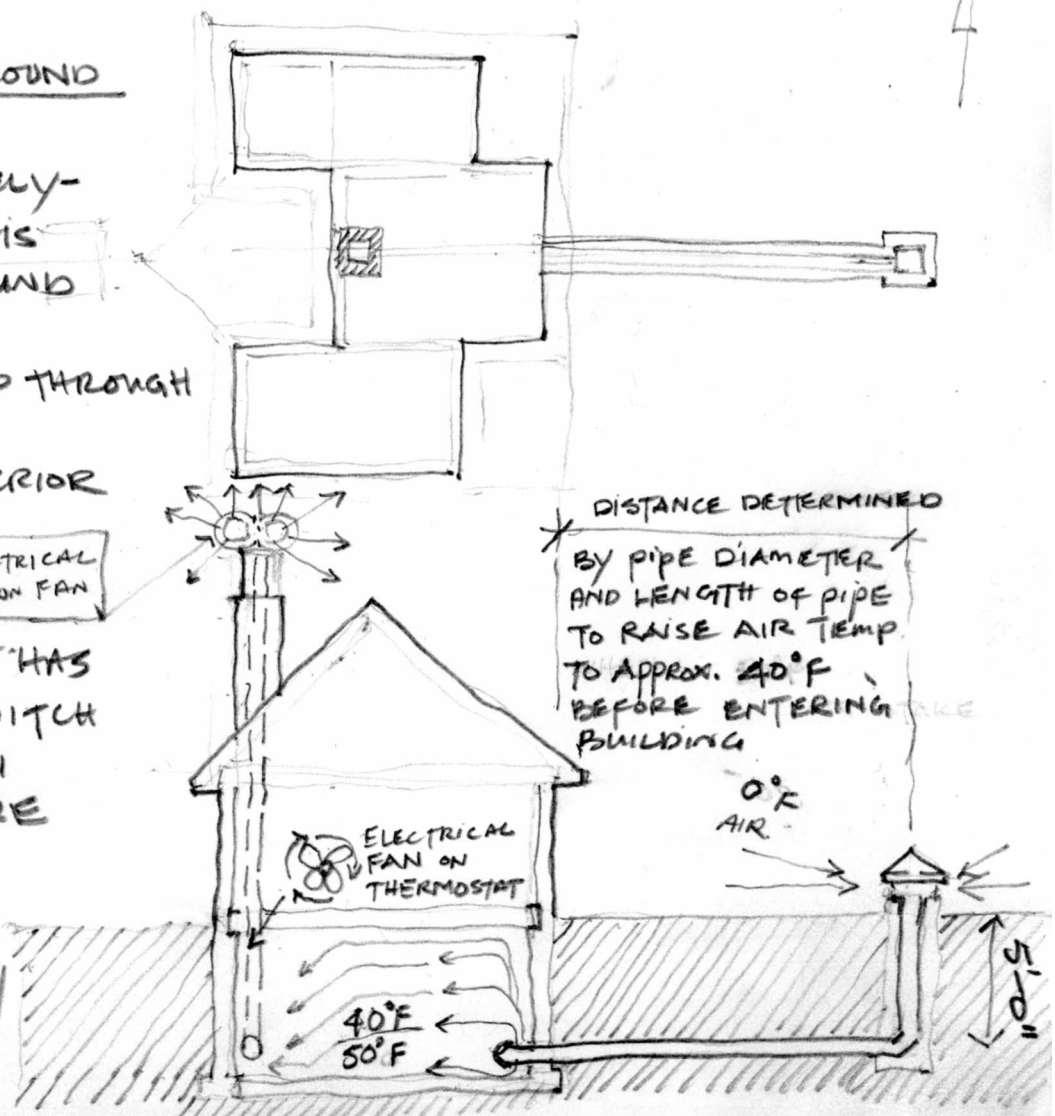 OUND
ELY-
iS
UND
THROUGH
ERIOR
TRICAL
ON FAN
HAS
ITCH
RE
DISTANCE DETERMINED
BY PIPE DIAMETER
AND LENGTH OF PIPE
TO RAISE AIR TEMP
TO APPROX. 40°F
BEFORE ENTERING
BUILDING
0°F
AIR
ELECTRICAL
FAN ON
THERMOSTAT
40°F
50°F
5'-0"